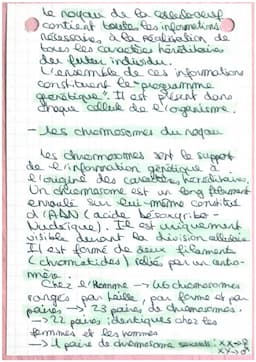 Le noyau de la cellule œuf
contient toutes les informations
nécessaires à la réalisation de
tous les caractères héréditaires
du futur individu.
L'ensemble de ces informations
constituent le "programme
génétique". Il est présent dans
chaque cellule de l'organisme.
- Les chromosomes du noyau
Les chromosomes sont le support
de l'information génétique à
l'origine des caractères héréditaires.
Un chromosome est un long filament
enroulé sur lui-même constitué
d'ADN (acide désoxyribo-
nucléique). Il est uniquement
visible durant la division cellulaire.
Il est formé de deux filaments
(chromatides) reliés par un centro-
mère.
Chez l'Homme → 46 chromosomes
rangés par taille, par forme et par
paires → 23 paires de chromosomes.
→ 22 paires identiques chez les
femmes et les hommes
→ 1 paire de chromosome sexuels : XX → ♀
XY → ♂